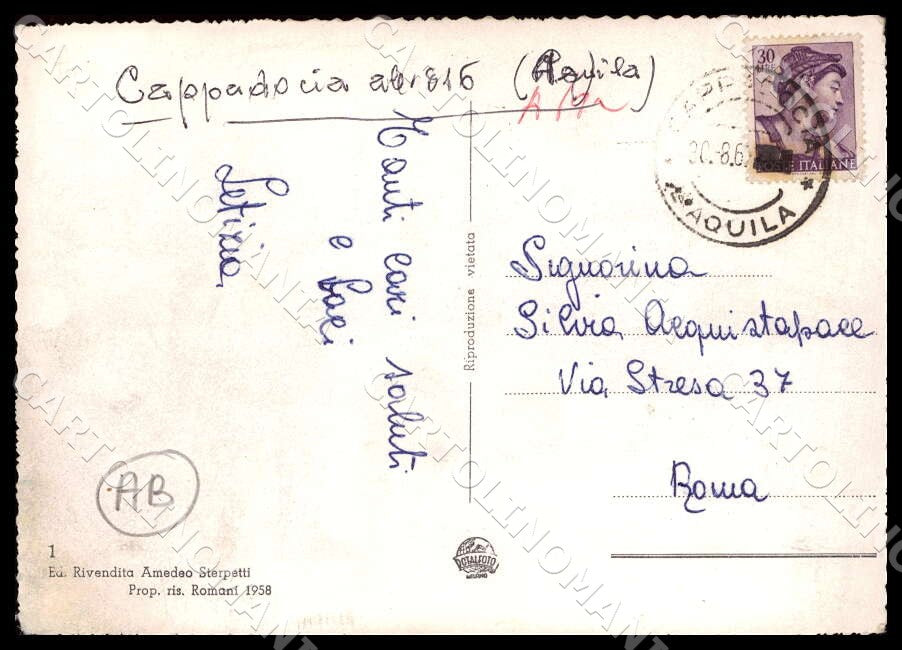 Cappadocia abr815 (Aquila)
Tanti cari saluti
e baci
Letizia
30
POSTE ITALIANE
30.-8.6
AQUILA
Signorina
Silvia Acquistapace
Via Stresa 37
Roma
Riproduzione vietata
AB
1
Ed. Rivendita Amedeo Sterpetti
Prop. ris. Romani 1958
ROTALFOTO
MILANO
CARTOLINOMANTIA